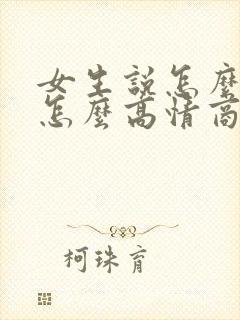 女生說怎麼
怎麼高情商
柯珠育